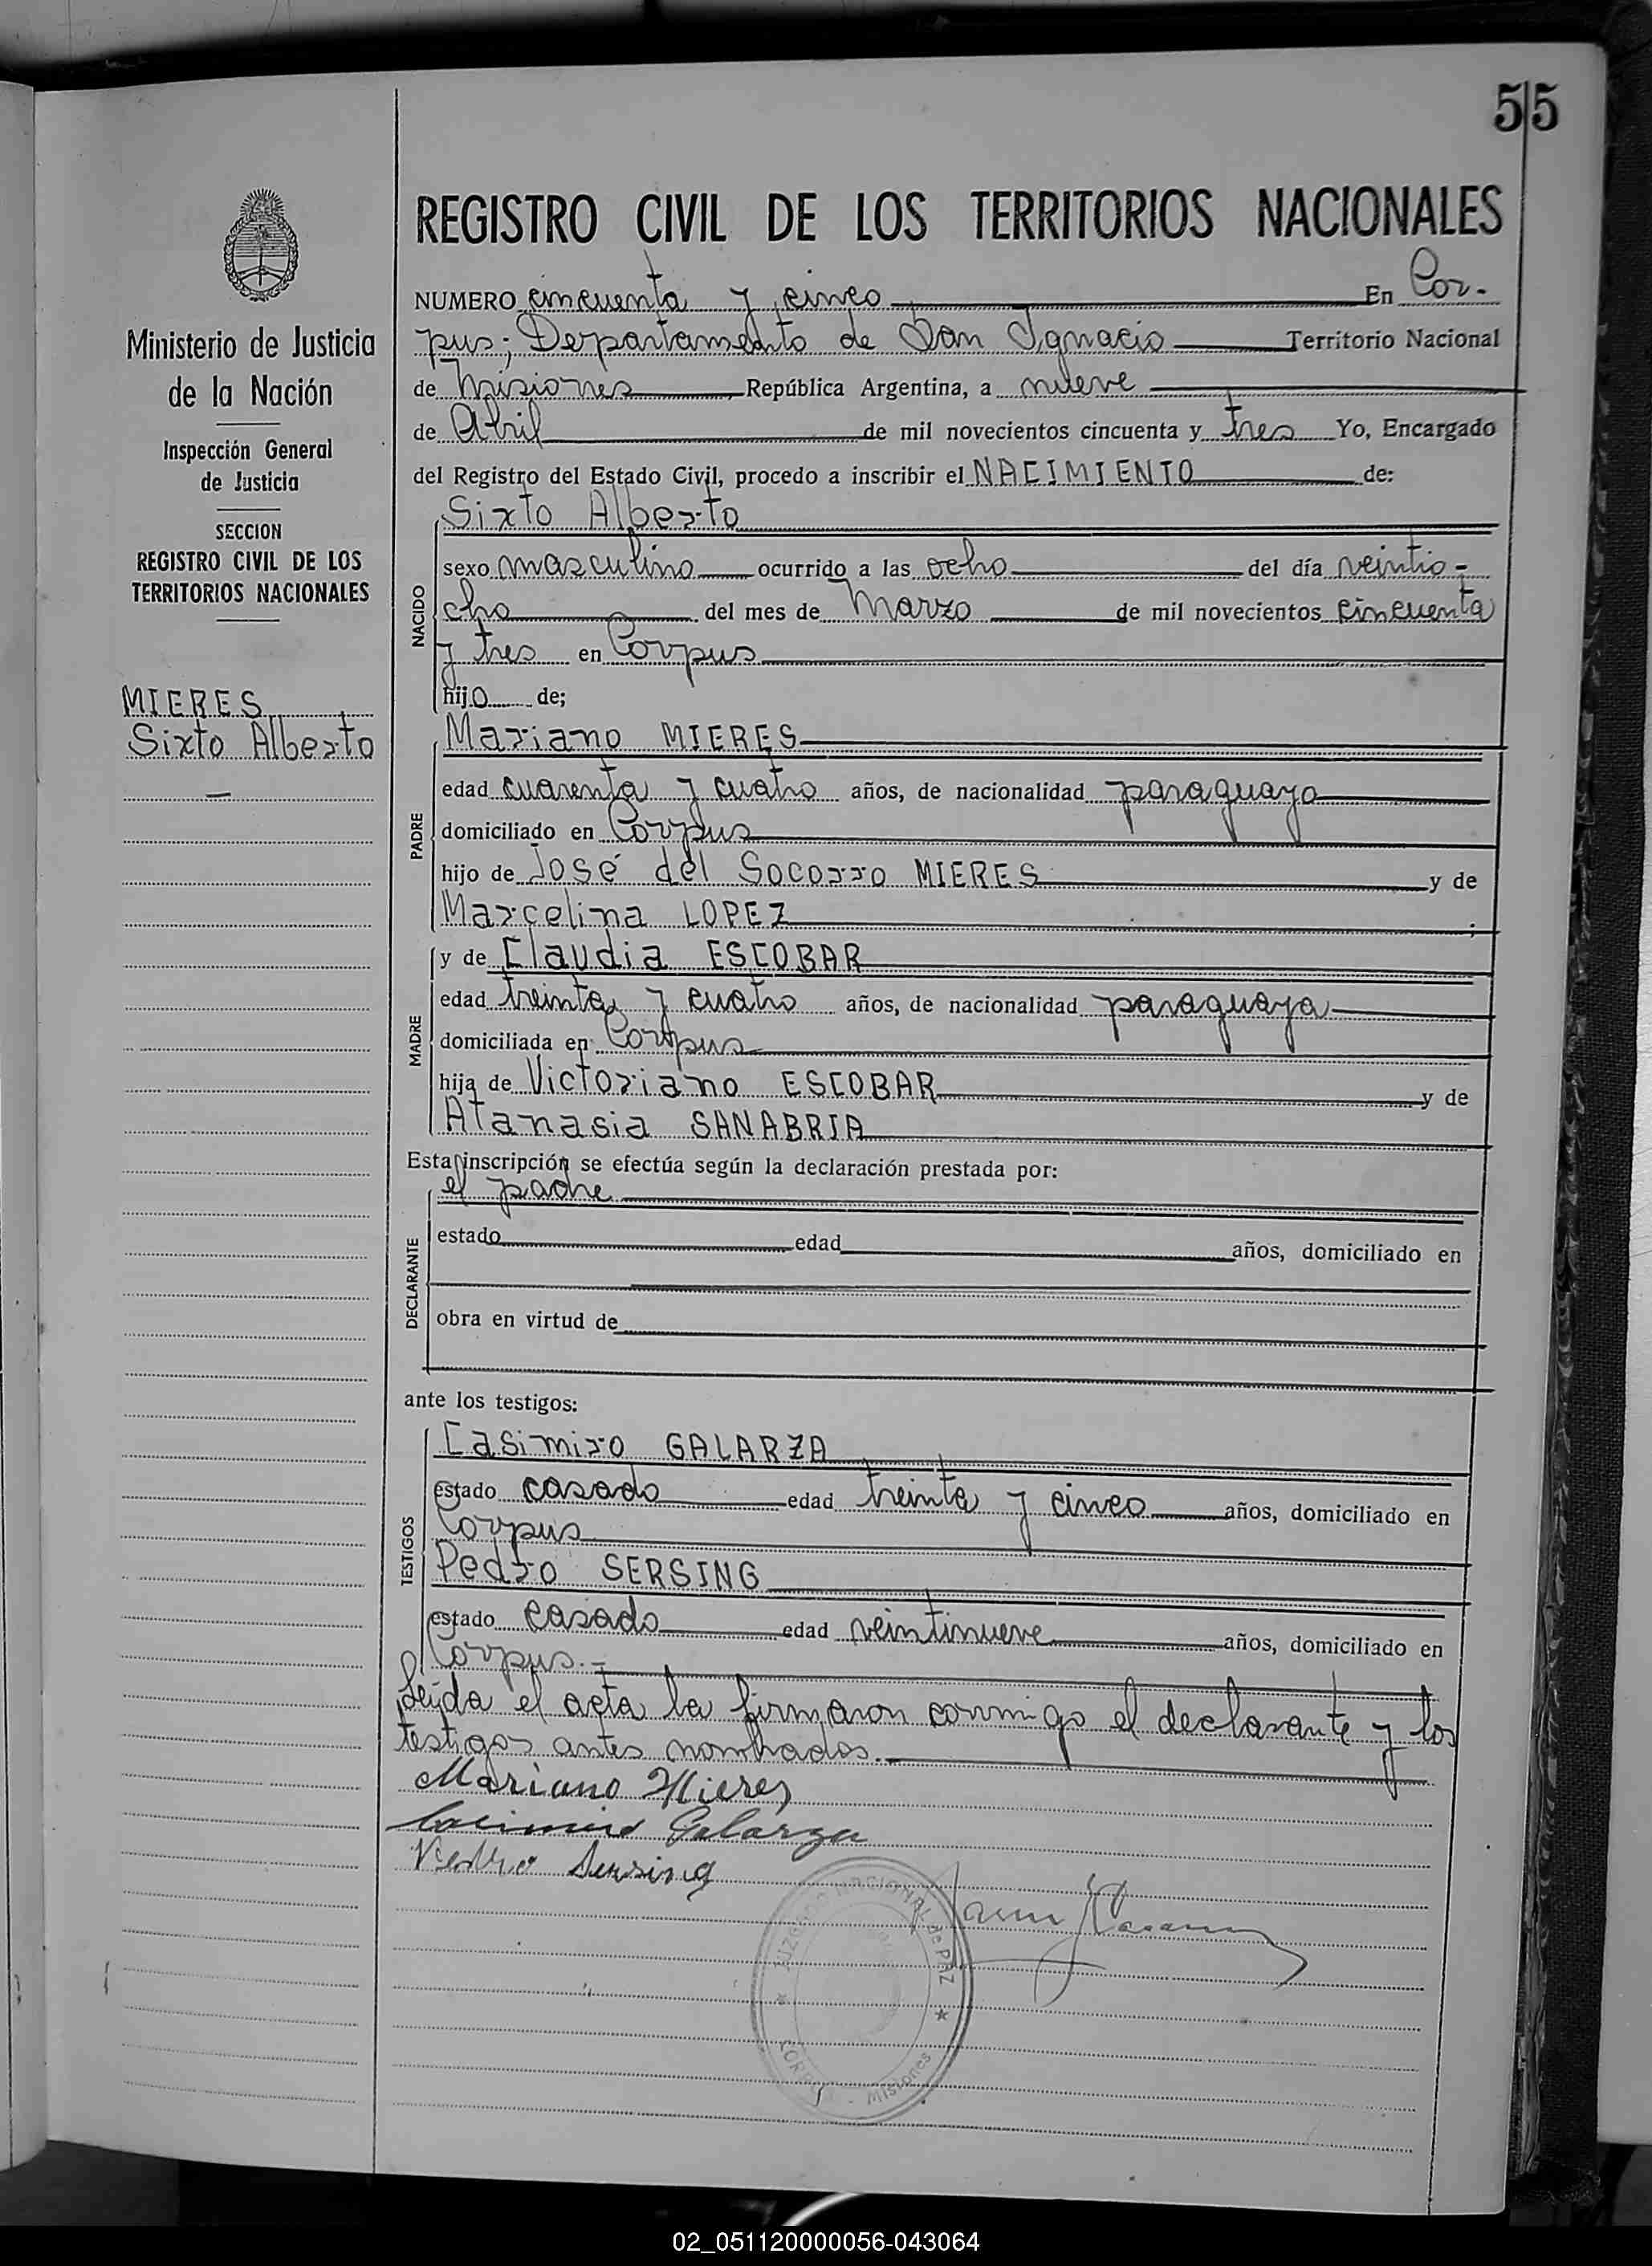 55
REGISTRO CIVIL DE LOS TERRITORIOS NACIONALES
Ministerio de Justicia
de la Nación
Inspección General
de Justicia
SECCION
REGISTRO CIVIL DE LOS
TERRITORIOS NACIONALES
MIERES
Sixto Alberto
NUMERO cincuenta y cinco En Cor-
pus; Departamento de San Ignacio Territorio Nacional
de Misiones República Argentina, a nueve
de Abril de mil novecientos cincuenta y tres Yo, Encargado
del Registro del Estado Civil, procedo a inscribir el NACIMIENTO de:
NACIDO
Sixto Alberto
sexo masculino ocurrido a las ocho del día veintio-
cho del mes de Marzo de mil novecientos cincuenta
y tres en Corpus
hijo de;
PADRE
Mariano MIERES
edad cuarenta y cuatro años, de nacionalidad paraguayo
domiciliado en Corpus
hijo de José del Socorro MIERES y de
Marcelina LOPEZ ;
MADRE
y de Claudia ESCOBAR
edad treinta y cuatro años, de nacionalidad paraguaya
domiciliada en Corpus
hija de Victoriano ESCOBAR y de
Atanasia SANABRIA
Esta inscripción se efectúa según la declaración prestada por:
DECLARANTE
el padre
estado edad años, domiciliado en
obra en virtud de
ante los testigos:
TESTIGOS
Casimiro GALARZA
estado casado edad treinta y cinco años, domiciliado en
Corpus
Pedro SERSING
estado casado edad veintinueve años, domiciliado en
Corpus.-
Leída el acta la firmaron conmigo el declarante y los
testigos antes nombrados.
Mariano Mieres
Casimiro Galarza
Pedro Sersing
JUZGADO NACIONAL de PAZ
CORPUS - Misiones
02_051120000056-043064